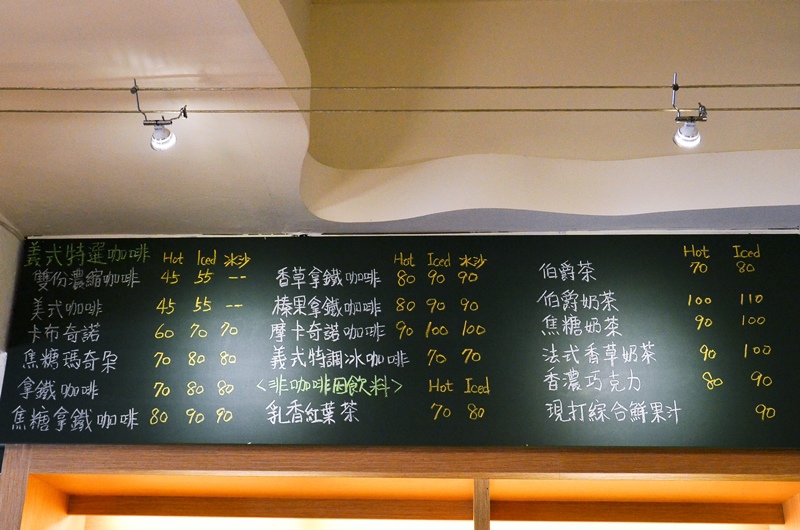 義式特選咖啡 Hot Iced 冰沙
雙份濃縮咖啡 45 55 --
美式咖啡 45 55 --
卡布奇諾 60 70 70
焦糖瑪奇朵 70 80 80
拿鐵咖啡 70 80 80
焦糖拿鐵咖啡 80 90 90
Hot Iced 冰沙
香草拿鐵咖啡 80 90 90
榛果拿鐵咖啡 80 90 90
摩卡奇諾咖啡 90 100 100
義式特調冰咖啡 70 70
<非咖啡因飲料> Hot Iced
乳香紅葉茶 70 80
Hot Iced
伯爵茶 70 80
伯爵奶茶 100 110
焦糖奶茶 90 100
法式香草奶茶 90 100
香濃巧克力 80 90
現打綜合鮮果汁 90